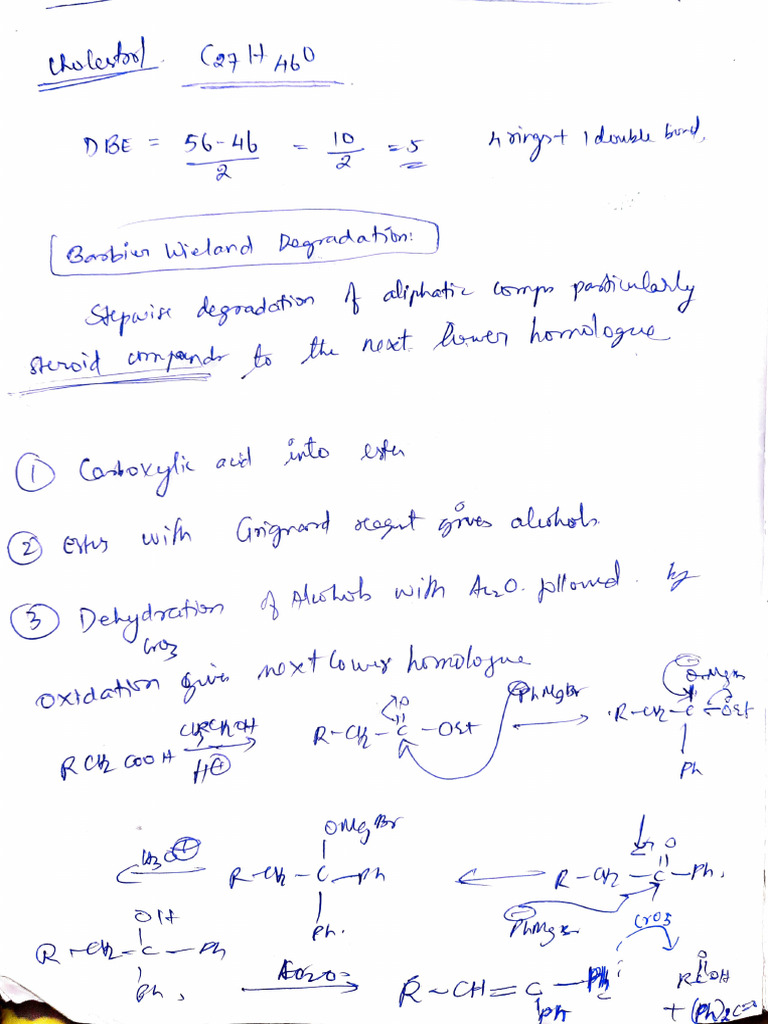 Cholestrol. C27H46O
DBE = 56-46/2 = 10/2 = 5 4 rings + 1 double bond,
Barbier Wieland Degradation:
Stepwise degradation of aliphatic comps particularly
steroid compounds to the next lower homologue
① Carboxylic acid into ester
② Ester with Grignard reagent gives alcohols.
③ Dehydration of Alcohols with Ac2O. followed by
CrO3
oxidation gives next lower homologue
RCH2COOH CH3CH2OH H⊕ R-CH2-C-OEt O PhMgBr R-CH2-C-OEt OMgBr Ph
H3O⊕ R-CH2-C-Ph OMgBr Ph. R-CH2-C-Ph, O PhMgBr
R-CH2-C-Ph OH Ph, Ac2O R-CH=C-Ph Ph CrO3 RCOH O
+ (Ph)2C=O